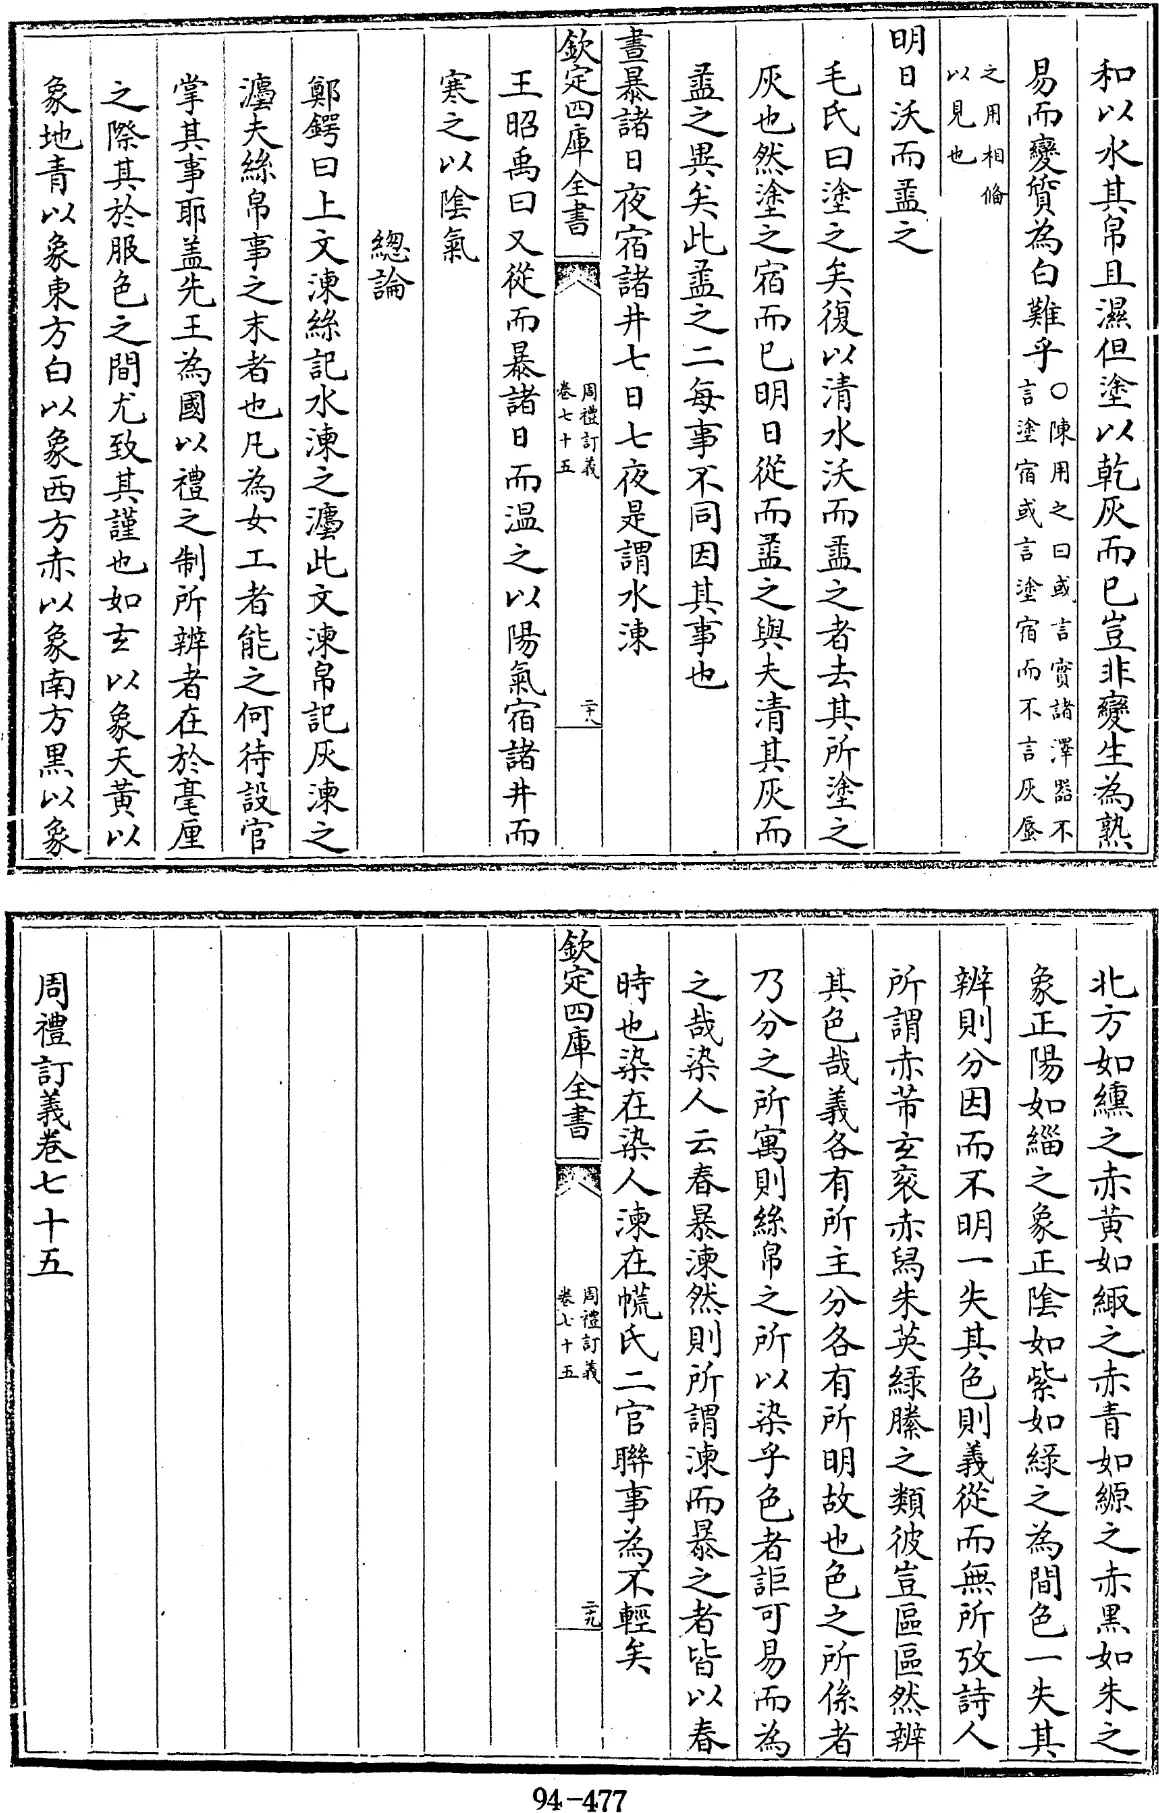 和以水其帛且濕但塗以乾灰而已豈非變生為熟
易而變質為白難乎○陳用之曰或言實諸澤器不
言塗宿或言塗宿而不言灰蜃
之用相偹
以見也
明日沃而盝之
毛氏曰塗之矣復以清水沃而盝之者去其所塗之
灰也然塗之宿而已明日從而盝之與夫清其灰而
盝之異矣此盝之二每事不同因其事也
晝暴諸日夜宿諸井七日七夜是謂水湅
欽定四庫全書
周禮訂義
卷七十五
二十八
王昭禹曰又從而暴諸日而温之以陽氣宿諸井而
寒之以陰氣
總論
鄭鍔曰上文湅絲記水湅之灋此文湅帛記灰湅之
灋夫絲帛事之末者也凡為女工者能之何待設官
掌其事耶盖先王為國以禮之制所辨者在於毫厘
之際其於服色之間尤致其謹也如玄以象天黃以
象地青以象東方白以象西方赤以象南方黑以象
北方如纁之赤黄如緅之赤青如縓之赤黑如朱之
象正陽如緇之象正陰如紫如緑之為間色一失其
辨則分因而不明一失其色則義從而無所攷詩人
所謂赤芾玄衮赤舄朱英緑縢之類彼豈區區然辨
其色哉義各有所主分各有所明故也色之所係者
乃分之所寓則絲帛之所以染乎色者詎可易而為
之哉染人云春暴湅然則所謂湅而暴之者皆以春
時也染在染人湅在㡛氏二官聯事為不輕矣
欽定四庫全書
周禮訂義
卷七十五
二十九
周禮訂義卷七十五
94-477